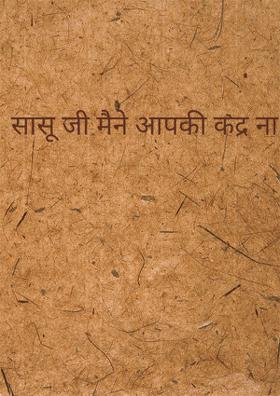 सासू जी मैने आपकी कद्र ना